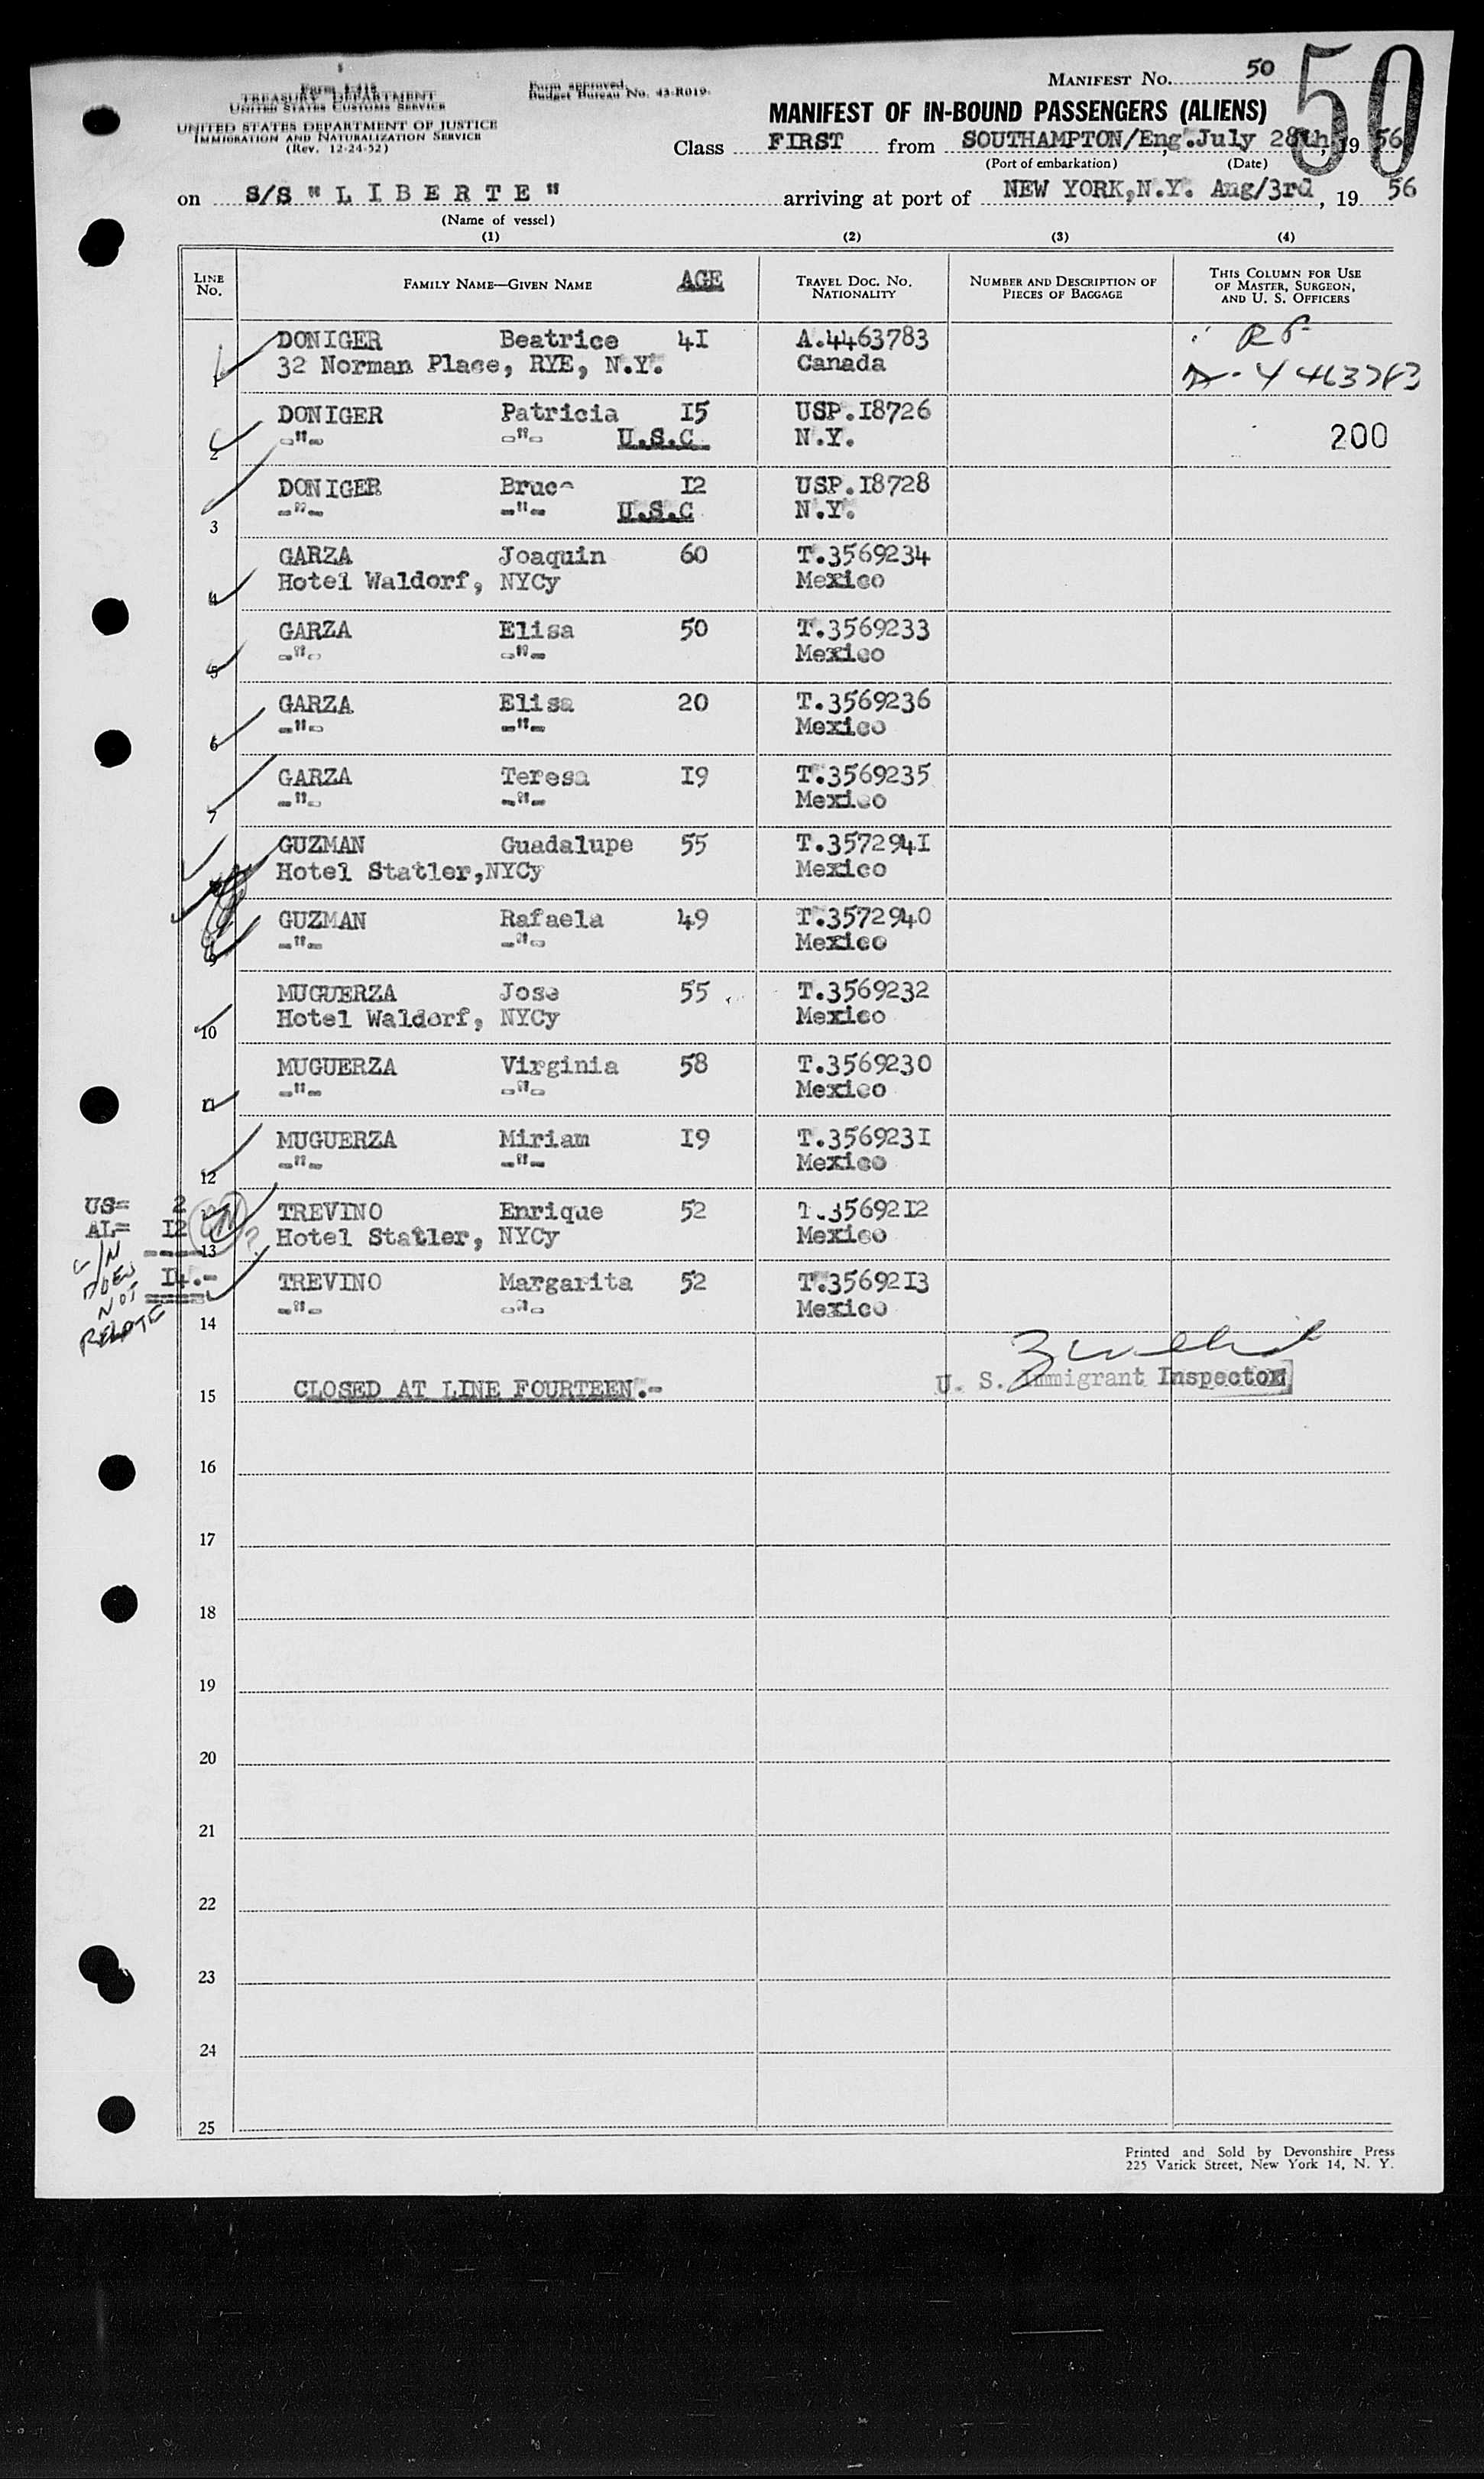 Form I-415
TREASURY DEPARTMENT
UNITED STATES CUSTOMS SERVICE
UNITED STATES DEPARTMENT OF JUSTICE
IMMIGRATION AND NATURALIZATION SERVICE
(Rev. 12-24-52)
Form approved.
Budget Bureau No. 43-R019.
MANIFEST No. 50
50
MANIFEST OF IN-BOUND PASSENGERS (ALIENS)
Class FIRST from SOUTHAMPTON/Eng. July 28th, 19 56
(Port of embarkation) (Date)
on S/S "L I B E R T E" arriving at port of NEW YORK,N.Y. Aug/3rd, 19 56
(Name of vessel)
(1) (2) (3) (4)
LINE No. FAMILY NAME—GIVEN NAME AGE TRAVEL DOC. NO. NATIONALITY NUMBER AND DESCRIPTION OF PIECES OF BAGGAGE THIS COLUMN FOR USE OF MASTER, SURGEON, AND U. S. OFFICERS
DONIGER Beatrice 4I A.4463783 RP
1 32 Norman Place, RYE, N.Y. Canada A-4463783
DONIGER Patricia I5 USP.I8726
2 -"- -"- U.S.C. N.Y. 200
DONIGER Bruce I2 USP.I8728
3 -"- -"- U.S.C N.Y.
GARZA Joaquin 60 T.3569234
4 Hotel Waldorf, NYCy Mexico
GARZA Elisa 50 T.3569233
5 -"- -"- Mexico
GARZA Elisa 20 T.3569236
6 -"- -"- Mexico
GARZA Teresa I9 T.3569235
7 -"- -"- Mexico
GUZMAN Guadalupe 55 T.357294I
Hotel Statler,NYCy Mexico
GUZMAN Rafaela 49 T.3572940
9 -"- -"- Mexico
MUGUERZA Jose 55 T.3569232
10 Hotel Waldorf, NYCy Mexico
MUGUERZA Virginia 58 T.3569230
11 -"- -"- Mexico
MUGUERZA Miriam I9 T.356923I
12 -"- -"- Mexico
US= 2 TREVINO Enrique 52 T.35692I2
AL= I2 13 ? Hotel Statler, NYCy Mexico
I4.- TREVINO Margarita 52 T.35692I3
14 -"- -"- Mexico
DOES
NOT
RELATE
U. S. Immigrant Inspector
15 CLOSED AT LINE FOURTEEN.-
16
17
18
19
20
21
22
23
24
25
Printed and Sold by Devonshire Press
225 Varick Street, New York 14, N. Y.